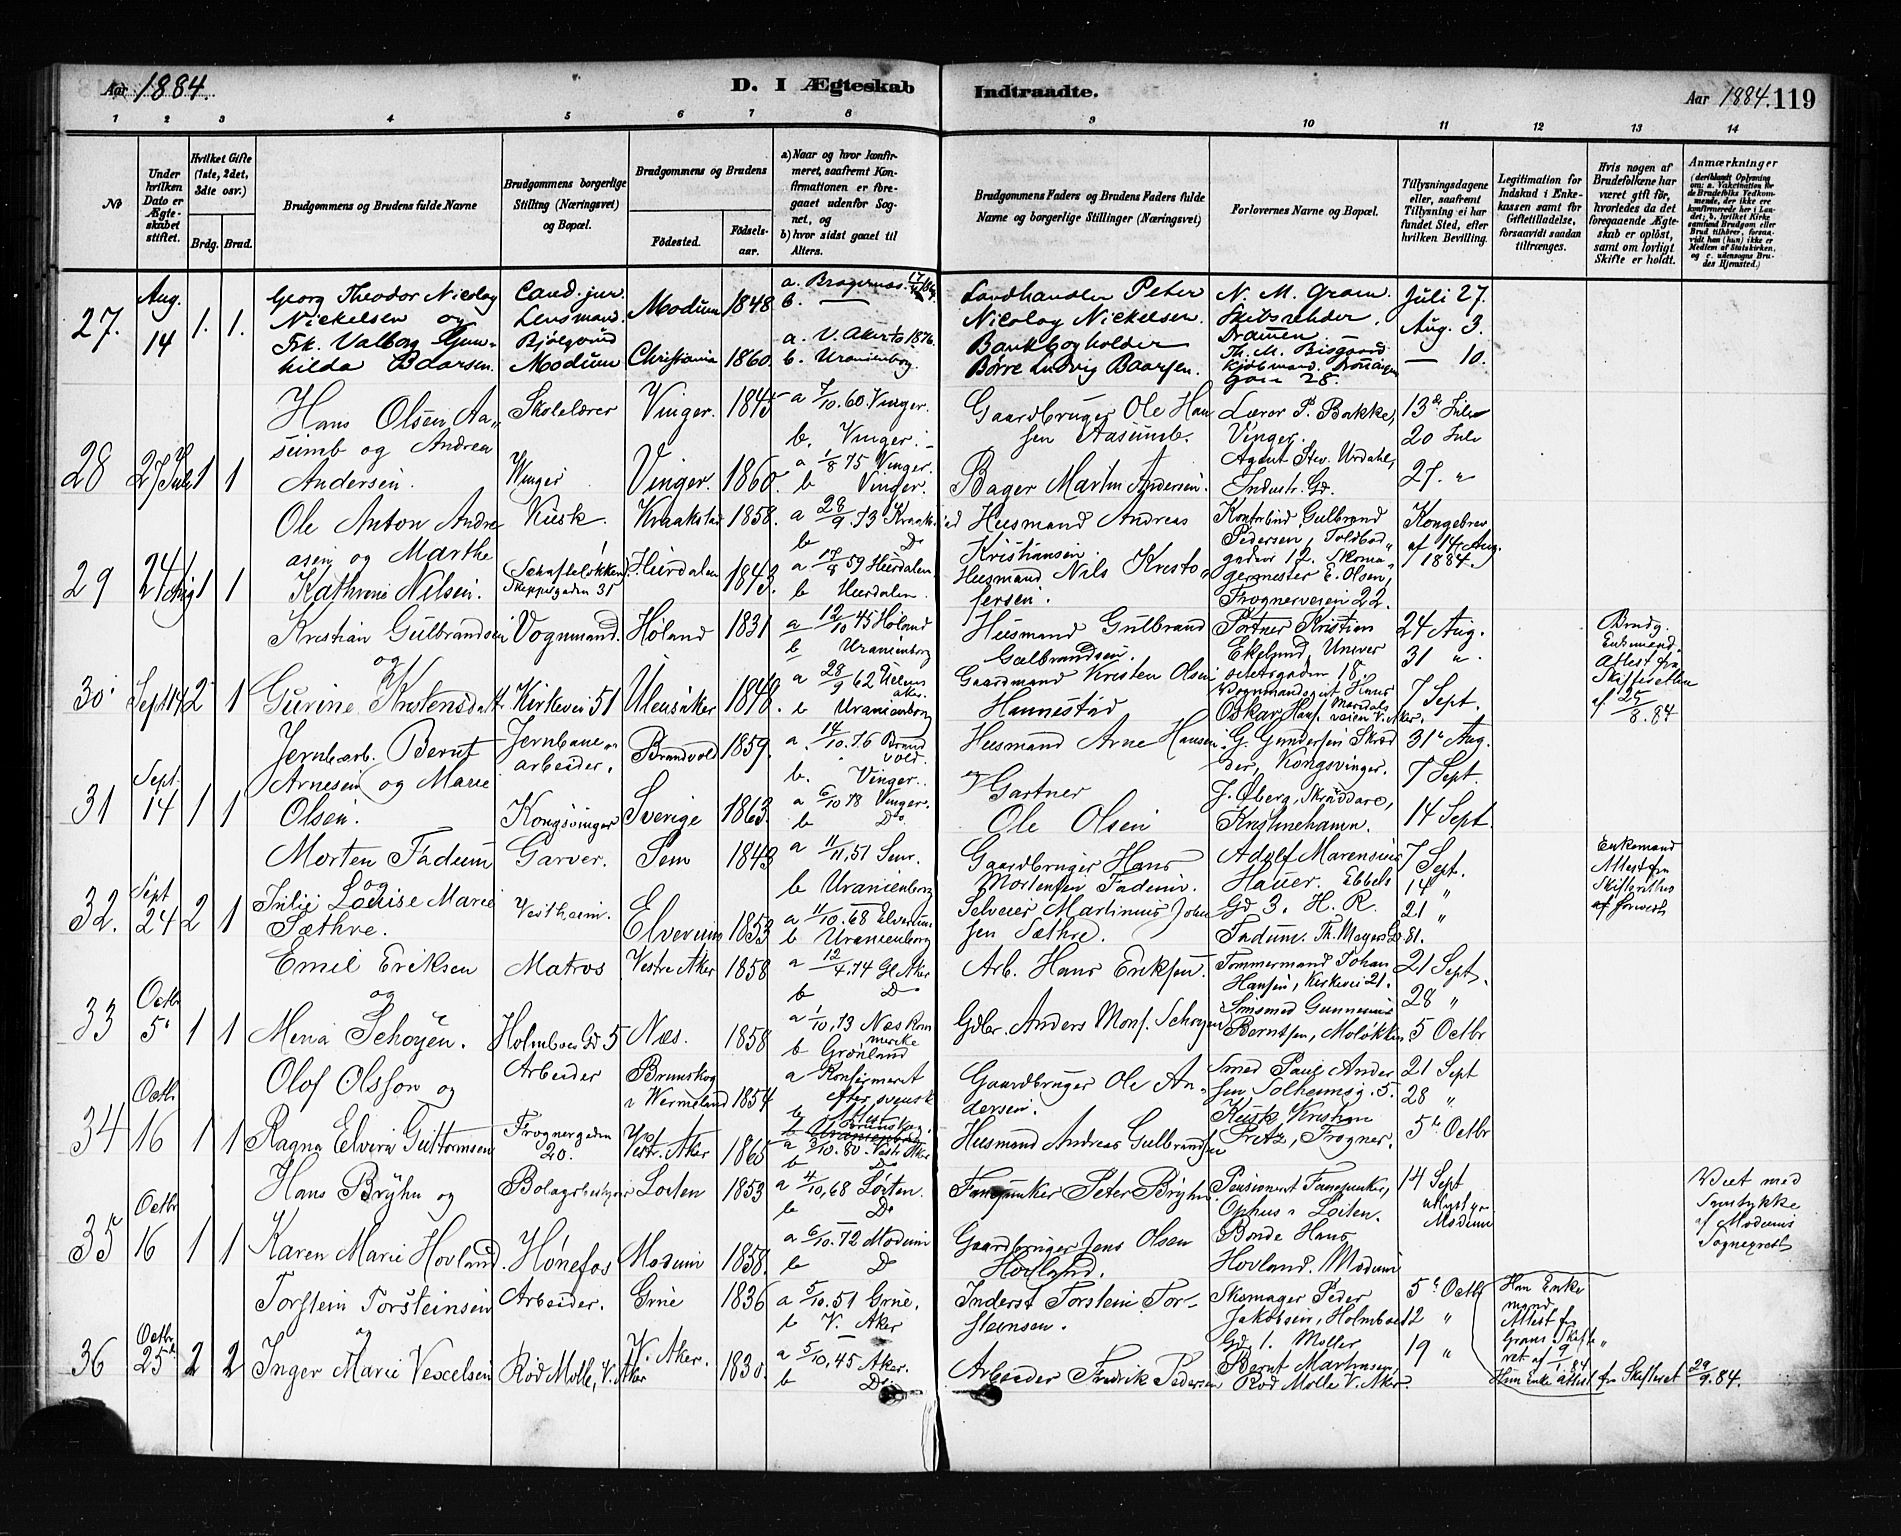 Aar 1884.
D. I Ægteskab
Indtraadte.
Aar 1884. 119
1 2 3 4 5 6 7 8 9 10 11 12 13 14
No
Under hvilken Dato er Ægteskabet stiftet.
Hvilket Gifte (1ste, 2det, 3die osv.)
Brdg. Brud.
Brudgommens og Brudens fulde Navne
Brudgommens borgerlige Stilling (Næringsvei) og Bopæl.
Brudgommens og Brudens
Fødested.
Fødselsaar.
a) Naar og hvor konfirmeret, saafremt Konfirmationen er foregaaet udenfor Sognet, og
b) hvor sidst gaaet til Alters.
Brudgommens Faders og Brudens Faders fulde Navne og borgerlige Stillinger (Næringsvei)
Forlovernes Navne og Bopæl.
Tillysningsdagene eller, saafremt Tillysning ei har fundet Sted, efter hvilken Bevilling.
Legitimation for Indskud i Enkekassen samt for Giftetilladelse, forsaavidt saadan tiltrænges.
Hvis nogen af Brudefolkene har været gift før, hvorledes da det foregaaende Ægteskab er opløst, samt om lovligt Skifte er holdt.
Anmærkninger
27.
Aug.
14
1. 1.
Georg Theodor Nicolay
Nickelsen og
Frk. Valborg Gunhilda Baarsen.
Cand. jur.
Lensmand.
Modum
Modum 1848
Christiania 1860.
a. Bragernes
b. —
a. V. Aker 1/10 1876.
b. Uranienborg.
Landhandler Peter
Nicolay Nickelsen.
Bankbogholder
Børre Ludvig Baarsen.
N. M. Gram.
Skibsreder.
Drammen
Th. M. Bisgaard
kjøbmand.
28.
Juli 27.
Aug. 3.
— 10.
28
27 Juli
1 1
Hans Olsen Aasumb og Andrea
Andersen.
Skolelærer
Vinger
Vinger. 1845
Vinger. 1860.
a 7/10. 60. Vinger.
b. Vinger.
a 1/8 75 Vinger.
b Vinger.
Gaardbruger Ole Hansen Aasumb.
Bager Martin Andersen.
Lærer P. Bakke,
Vinger.
Agent Urdahl,
Industr. Gd.
13de Juli
20 Juli
27. "
29
24 Aug
1 1
Ole Anton Andreasen og Marthe
Kathrine Nilsen.
Kusk.
31
Kraakstad 1858.
Hurdalen 1843.
a 28/9. 73 Kraakstad
b Do
a 59 Hurdalen.
b Hurdalen.
Husmand Andreas
Kristiansen.
Husmand Nils Kristofersen.
Kontorbud Gulbrand
Pedersen, Toldbodgaden 12. Skomagermester E. Olsen,
Frognerveien 22.
Kongebrev
af 14 Aug.
1884.
30
Sept 14
2 1
Kristian Gulbrandsen
og
Gurine Kristensdatt
Vognmand.
Kirkevei 51
Høland 1831
Ulensaker 1848.
a 12/10 45 Høland
b Uranienborg
a 28/9 62 Ulensaker.
b Uranienborg
Husmand Gulbrand
Gulbrandsen.
Gaardmand Kristen Olsen
Hannestad
Portner Kristian
Ekelund, Universitetsgaden 18.
Hans
Oskar V. Aker.
24 Aug.
31 "
7 Sept.
Brudg.
Enkemand.
Attest fra
Skifteretten
af 25/8. 84
31
Sept.
14
1 1
Jernbarb. Bernt
Arnesen og Marie
Olsen.
Jernbanearbeider.
Kongsvinger
Brandvold 1859.
Sverige 1863.
a. 14/10. 76 Brandvold.
b. Vinger.
a 6/10 78 Vinger.
b Do.
Husmand Arne Hansen
Gartner
Ole Olsen
G. Gundersen Skrædder, Kongsvinger.
J. Øberg, Skräddare,
Kristinehamn.
31te Aug.
7 Sept.
14 Sept.
32.
Sept
24
2 1
Morten Fadum
og
Julie Lovise Marie
Sæthre.
Garver.
Vestheim.
Sem 1843
Elverum 1853
a 11/11. 51 Sem.
b Uranienborg
a 11/10. 68 Elverum
b Uranienborg
Gaardbruger Hans
Mortensen Fadum.
Selveier Martinius Johnsen Sæthre.
Adolf Marensius
Hauer. Ebbels
Gd 3. H. R.
Fadum. Th. Meyers G 81.
7 Sept.
14 "
21 "
Enkemand
Attest fra
Skifteretten
af
33
Octbr
5
1 1
Emil Eriksen
og
Mena Schøyen.
Matros
Holmboes Gd 5
Vestre Aker 1858
Næs. 1858
a 12/4. 74 Gl Aker
b Do
a 1/10. 73 Næs Romerike
b Grønland
Arb. Hans Eriksen.
Gdbr. Anders Mons. Schøyen
Tømmermand Johan
Hansen, Kirkevei 21.
Gunnerius
Berntsen, Moløkken
21 Sept.
28 "
5 Octbr
34
Octbr
16
1 1
Olof Olsson og
Ragna Elvira Guttormsen
Arbeider
Frognergaden
20.
Brunskog
i Wermeland 1854
Vestr. Aker 1865
a Konfirmeret
efter svensk
Attest
b Brunskog.
a 3/10. 80. Vestr. Aker
b Do
Gaardbruger Ole Andersen.
Husmand Andreas Gulbrandsen
Smed Paul Andersen Solheimsg. 5.
Kusk Kristian
Pretz, Frogner.
21 Sept
28 "
5te Octbr
35
Octbr
16
1 1
Hans Bryhn og
Karen Marie Hovland.
Hønefos
Løiten 1853
Modum 1858.
a 4/10. 68 Løiten.
b Do
a 6/10. 72 Modum
b D
Fanejunker Peter Bryhn.
Gaardbruger Jens Olsen
Hovland.
Pensioneret Fanejunker,
Ophus i Løiten.
Bonde Hans
Hovland. Modum
14 Sept
udlyst pr
Modum
Viet med
af Modums
Sogneprest
36
Octbr
25
2 2
Torstein Torsteinsen
og
Inger Marie Vexelsen
Arbeider.
Rød Mølle, V. Aker
Grue 1836
V. Aker. 1830.
a 5/10. 51 Grue.
b V. Aker
a 5/10. 45 Aker.
b Do.
Inderst Torstein Torsteinsen.
Arbeider Fredrik Pedersen
Skomager Peder
Jakobsen, Holmboes
Gd 1. Møller
Bernt Martinsen
Rød Mølle V. Aker.
5te Octbr
12 "
19 "
Han Enkemand
Attest fr
Grues Skifteret af 9/1. 84
Hun Enke Attest fr Skifteret 29/9. 84.